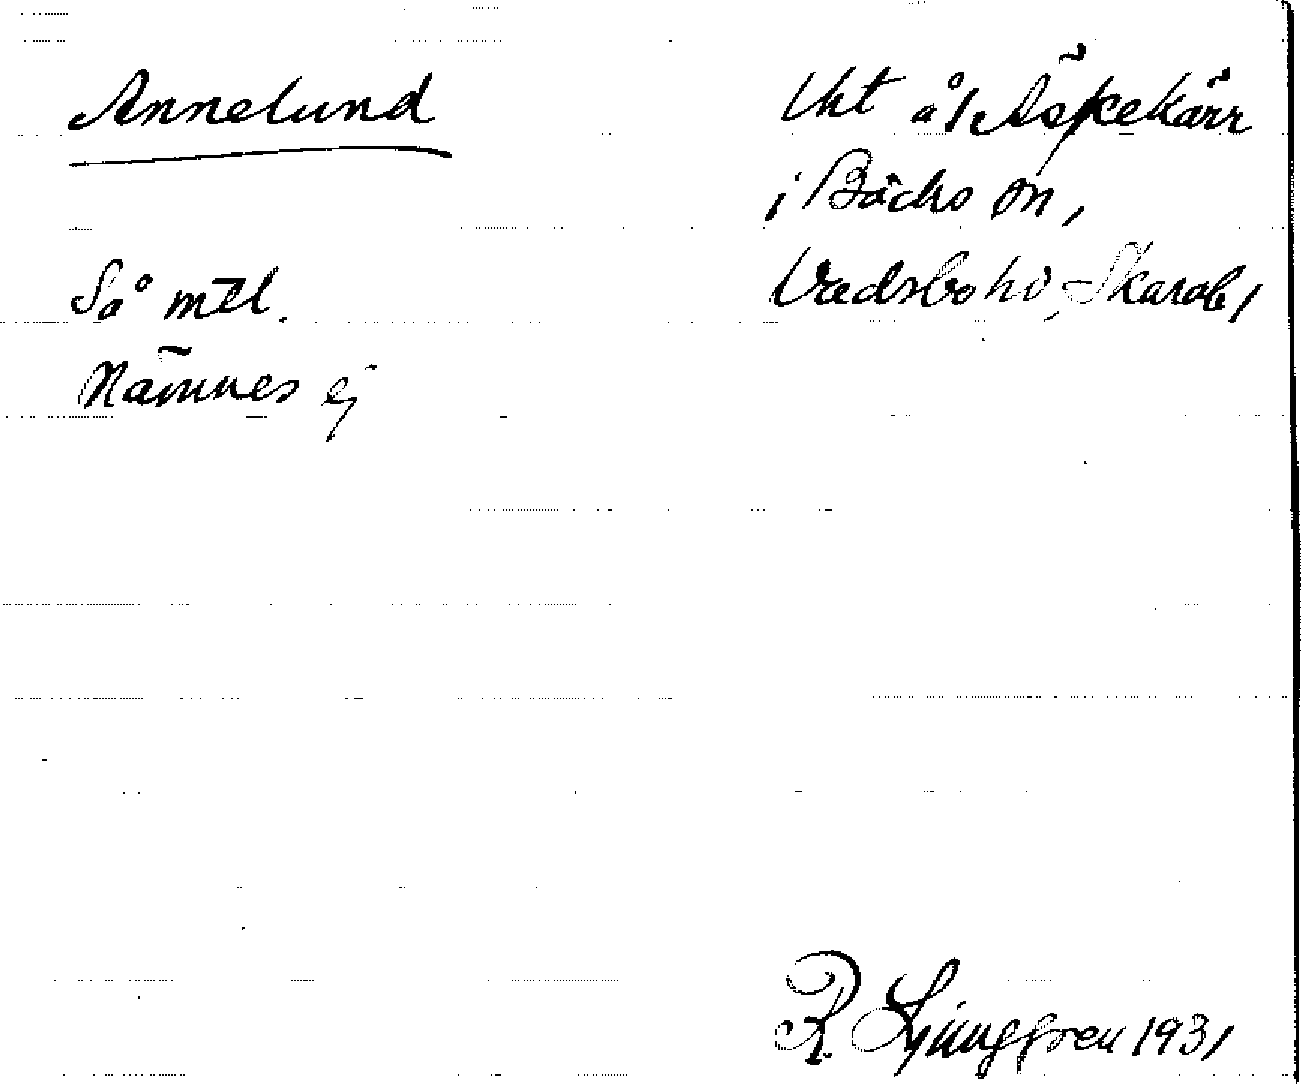 Annelund
Så mtl.
Nämnes ej
Uht å Äskekärr
i Bäcks sn,
Vadsbo hd, Skarab,
R. Ljunggren 1931